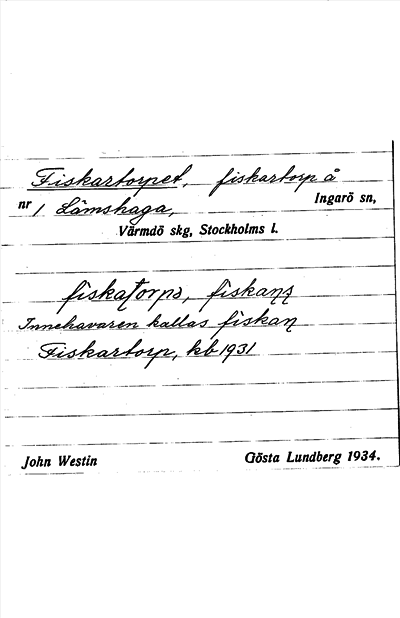 Fiskartorpet, fiskartorp å
nr 1 Lämshaga, Ingarö sn,
Värmdö skg, Stockholms l.
fiskaʈorpə, fiskaɳʂ
Innehavaren kallas fiskaɳ
Fiskartorp, kb 1931
John Westin Gösta Lundberg 1934.